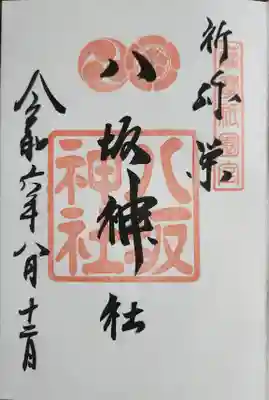 祈弥栄
八坂神社
八坂神社
令和六年八月十二日